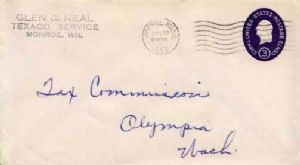 GLEN G. NEAL
TEXACO SERVICE
MONROE, WN.
MONROE, WASH.
UNITED STATES POSTAGE
3
Tax Commission
Olympia
Wash.